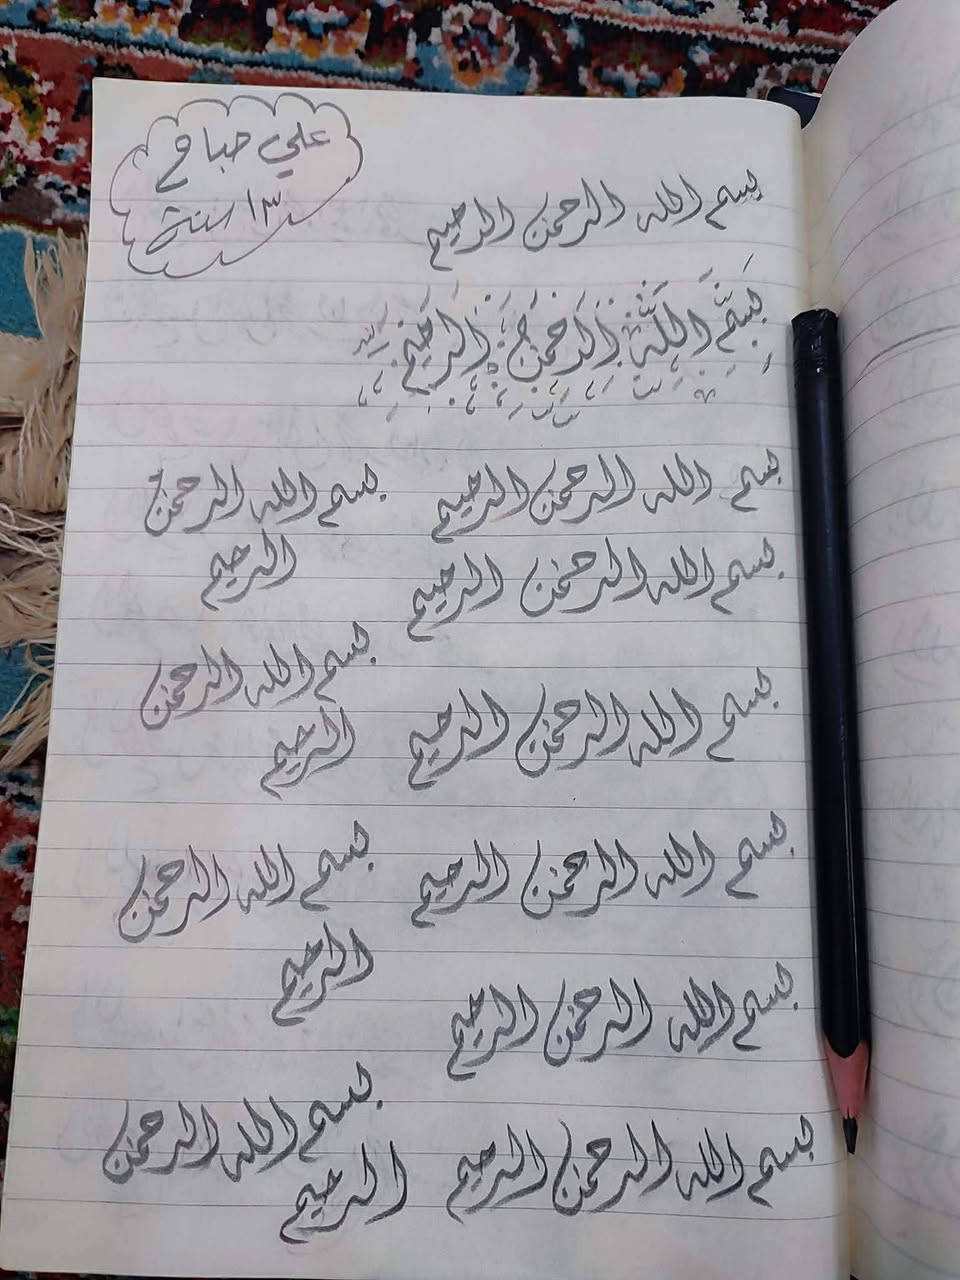 علي صباح
١٣ سنة
بسم الله الرحمن الرحيم
بِسْمِ اللَّهِ الرَّحْمَنِ الرَّحِيمِ
بسم الله الرحمن الرحيم
بسم الله الرحمن
الرحيم
بسم الله الرحمن الرحيم
بسم الله الرحمن
الرحيم
بسم الله الرحمن الرحيم
بسم الله الرحمن الرحيم
بسم الله الرحمن
الرحيم
بسم الله الرحمن الرحيم
بسم الله الرحمن
الرحيم
بسم الله الرحمن الرحيم